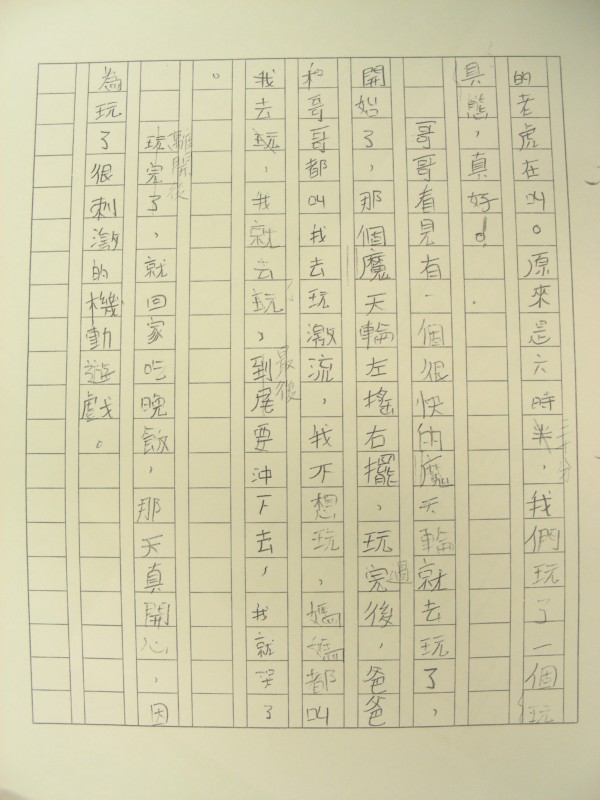 的老虎在叫。原來是六時半，我們玩了一個玩
具熊，真好！
哥哥看見有一個很快的魔天輪就去玩了，
開始了，那個魔天輪左搖右擺，玩完後，爸爸
過
和哥哥都叫我去玩激流，我不想玩，媽媽都叫
我去玩，我就去玩，到尾要沖下去，我就哭了
最後
。
玩完了，就回家吃晚飯，那天真開心，因
離開後
為玩了很刺激的機動遊戲。